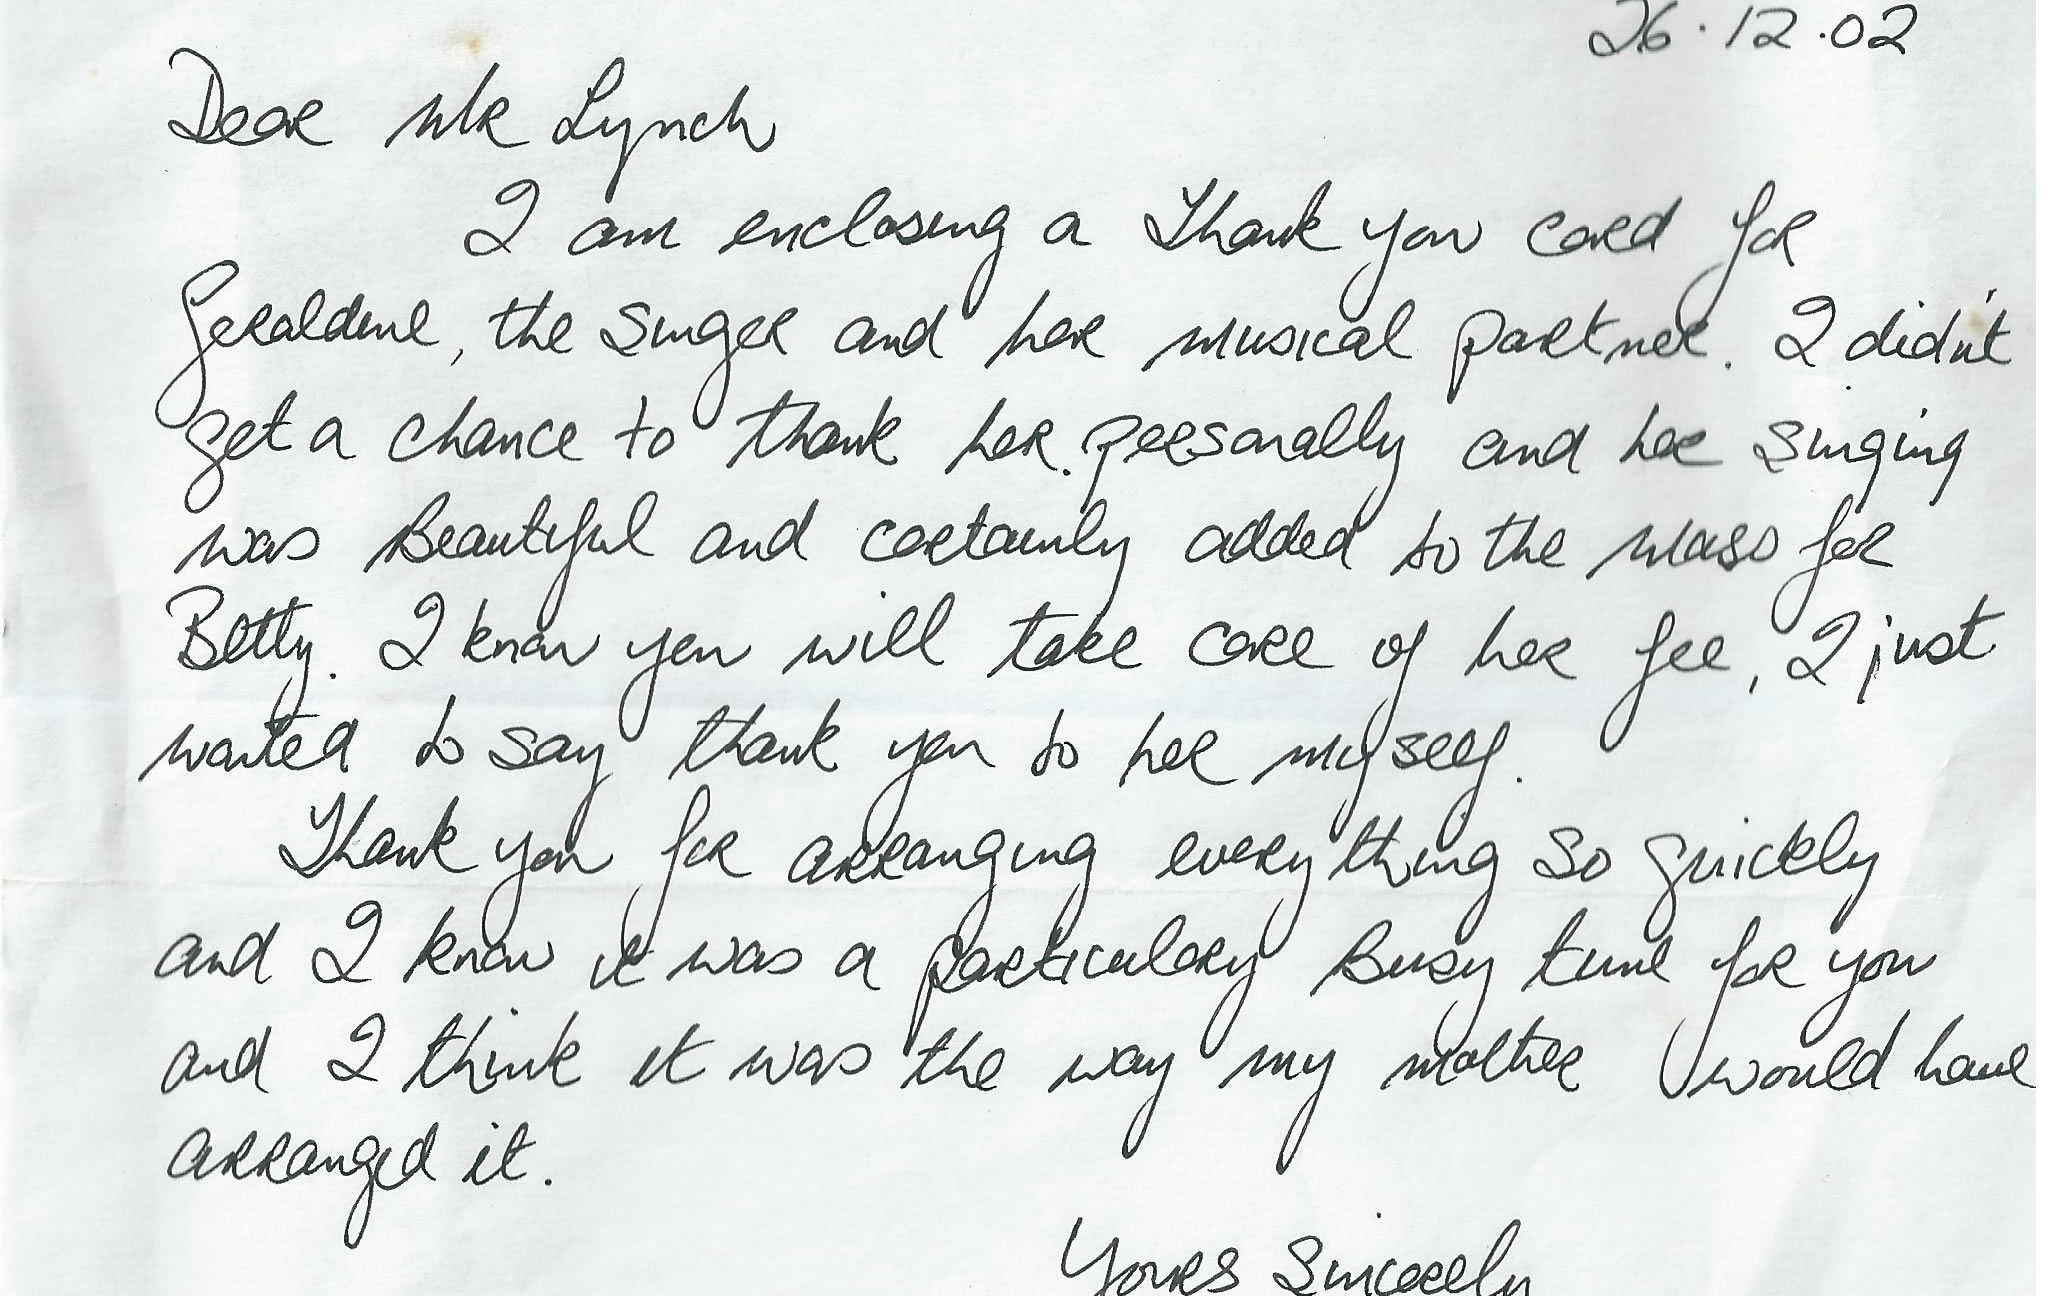 26.12.02
Dear Mr Lynch
I am enclosing a Thank you card for
Geraldine, the singer and her musical partner. I didn't
get a chance to thank her personally and her singing
was Beautiful and certainly added to the mass for
Betty. I know you will take care of her fee, I just
wanted to say thank you to her myself.
Thank you for arranging everything so quickly
and I know it was a particulary Busy time for you
and I think it was the way my mother would have
arranged it.
Yours Sincerely